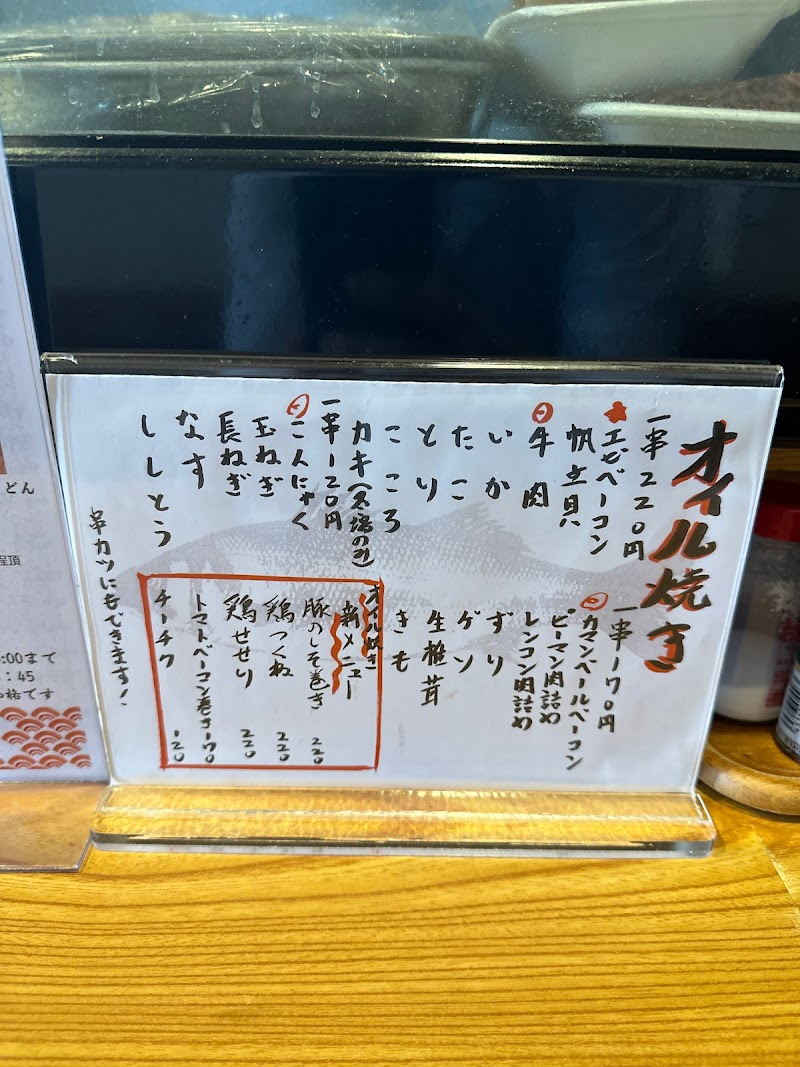 オイル焼き
一串220円
★エビベーコン
帆立貝
牛肉
いか
たこ
とり
こころ
カキ(冬場のみ)
一串120円
こんにゃく
玉ねぎ
長ねぎ
なす
ししとう
一串170円
カマンベールベーコン
ピーマン肉詰め
レンコン肉詰め
ずり
ゲソ
生椎茸
きも
オイル焼き
新メニュー
豚のしそ巻き 220
鶏つくね 220
鶏せせり 220
トマトベーコン巻き 170
チーチク 120
串カツにもできます!
どん
:00まで
:45
格です